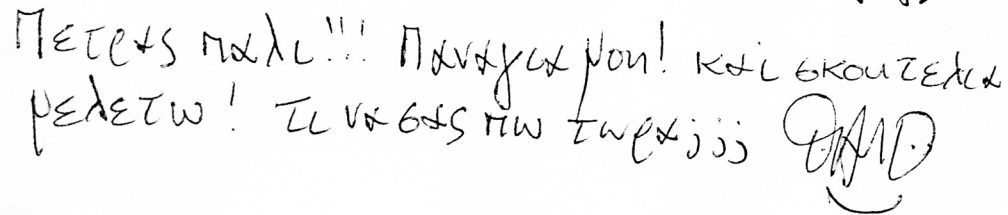 Πετρας παλι!!! Παναγια μου! και σκουτελια
μελετω! τι να σας πω τωρα;;;